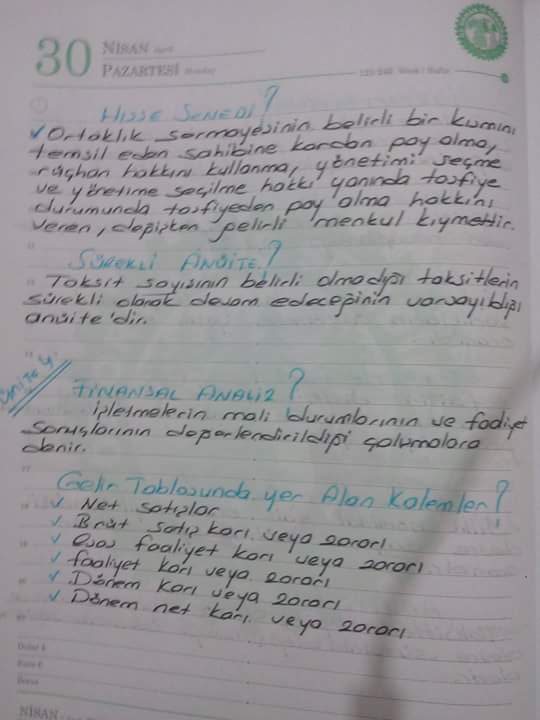 30
NİSAN April
PAZARTESİ Monday
HİSSE SENEDİ?
✓ Ortaklık sermayesinin belirli bir kısmını
temsil eden sahibine kardan pay alma,
rüçhan hakkını kullanma, yönetimi seçme
ve yönetime seçilme hakkı yanında tasfiye
durumunda tasfiyeden pay alma hakkını
veren, değişken gelirli menkul kıymettir.
SÜREKLİ ANÜİTE?
Taksit sayısının belirli olmadığı taksitlerin
sürekli olarak devam edeceğinin varsayıldığı
anüite'dir.
ÜNİTE 4
FİNANSAL ANALİZ?
İşletmelerin mali durumlarının ve faaliyet
sonuçlarının değerlendirildiği çalışmalara
denir.
Gelir Tablosunda yer Alan Kalemler?
✓ Net satışlar
✓ Brüt satış karı veya zararı
✓ Esas faaliyet karı veya zararı
✓ faaliyet karı veya zararı
✓ Dönem karı veya zararı
✓ Dönem net karı veya zararı
Dolar $
Euro €
Borsa
NİSAN